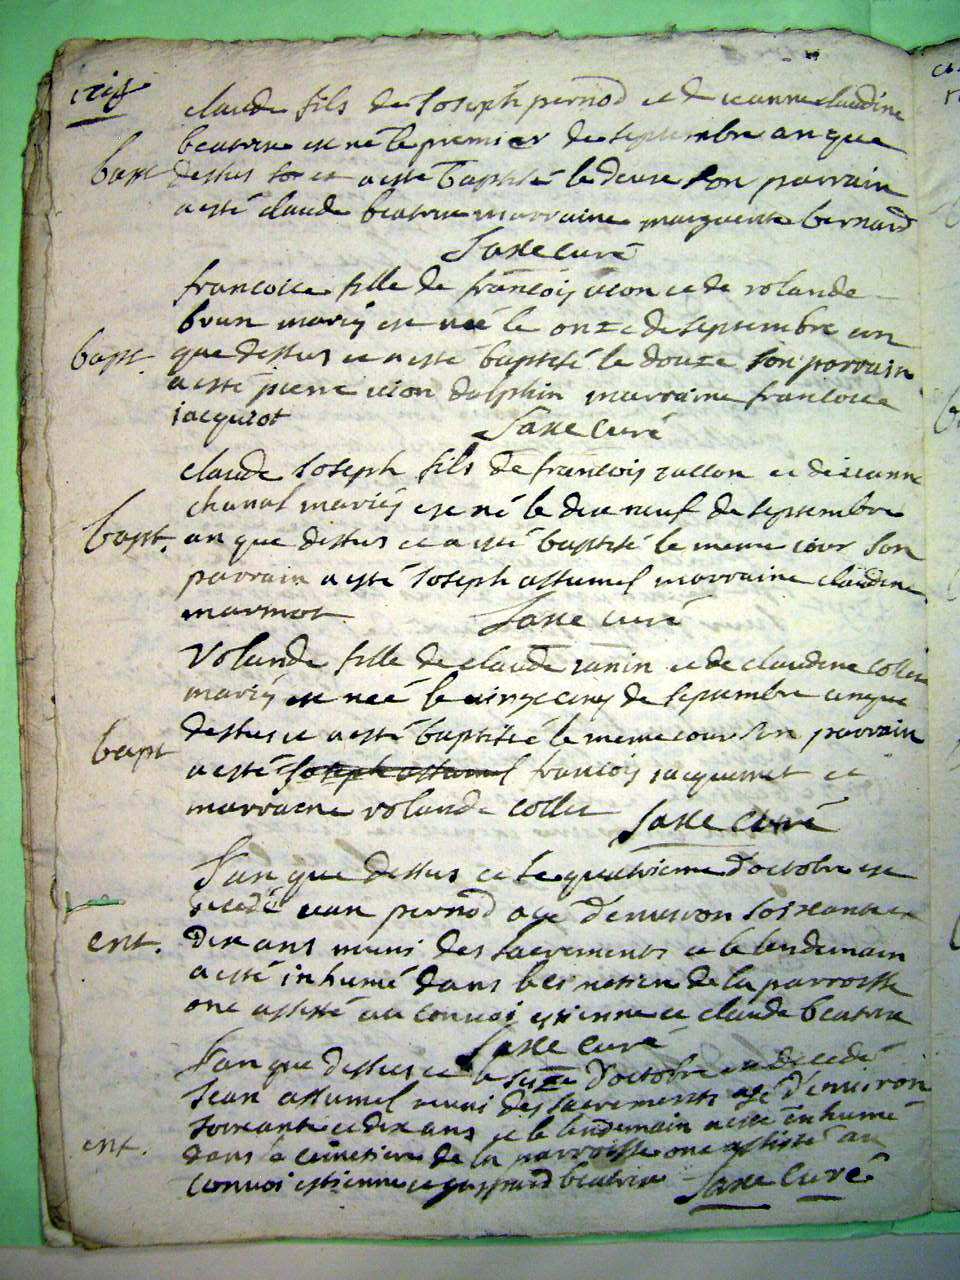 claude fils de Joseph pernod et de jeanne claudine
beatrix est né le premier de septembre an que
bapt dessus et a esté baptisé le deux son parrain
a esté claude beatrix marraine marguerite bernard
Saxe curé
francoise fille de francois vion et de rolande
brun mariés est neé le onze de septembre an
bapt. que dessus et a esté baptisé le douze son parrain
a esté pierre vion dalphin marraine francoise
jacquiot
Saxe curé
claude Joseph fils de francois et de jeanne
mariés est né le dix neuf de septembre
bapt. an que dessus et a esté baptisé le meme jour son
parrain a esté Joseph assumel marraine claudine
marmot Saxe curé
rolande fille de claude janin et de claudine
mariés est neé le vingt cinq de septembre an que
dessus et a esté baptisée le meme jour son parrain
bapt a esté Joseph assumel francois jacquemet et
marraine rolande Saxe curé
l'an que dessus et le quatrieme d'octobre est
decedé jean pernod agé d'environ soixante et
ent. dix ans muni des sacrements et le lendemain
a esté inhumé dans le cimetiere de la parroisse
ont assisté au convoi estienne et claude beatrix
Saxe curé
l'an que dessus et le seize d'octobre est decedé
Jean assumel muni des sacrements agé d'environ
soixante et dix ans et le lendemain a esté inhumé
ent. dans le cimetiere de la parroisse ont assisté au
convoi estienne et gaspard beatrix Saxe curé